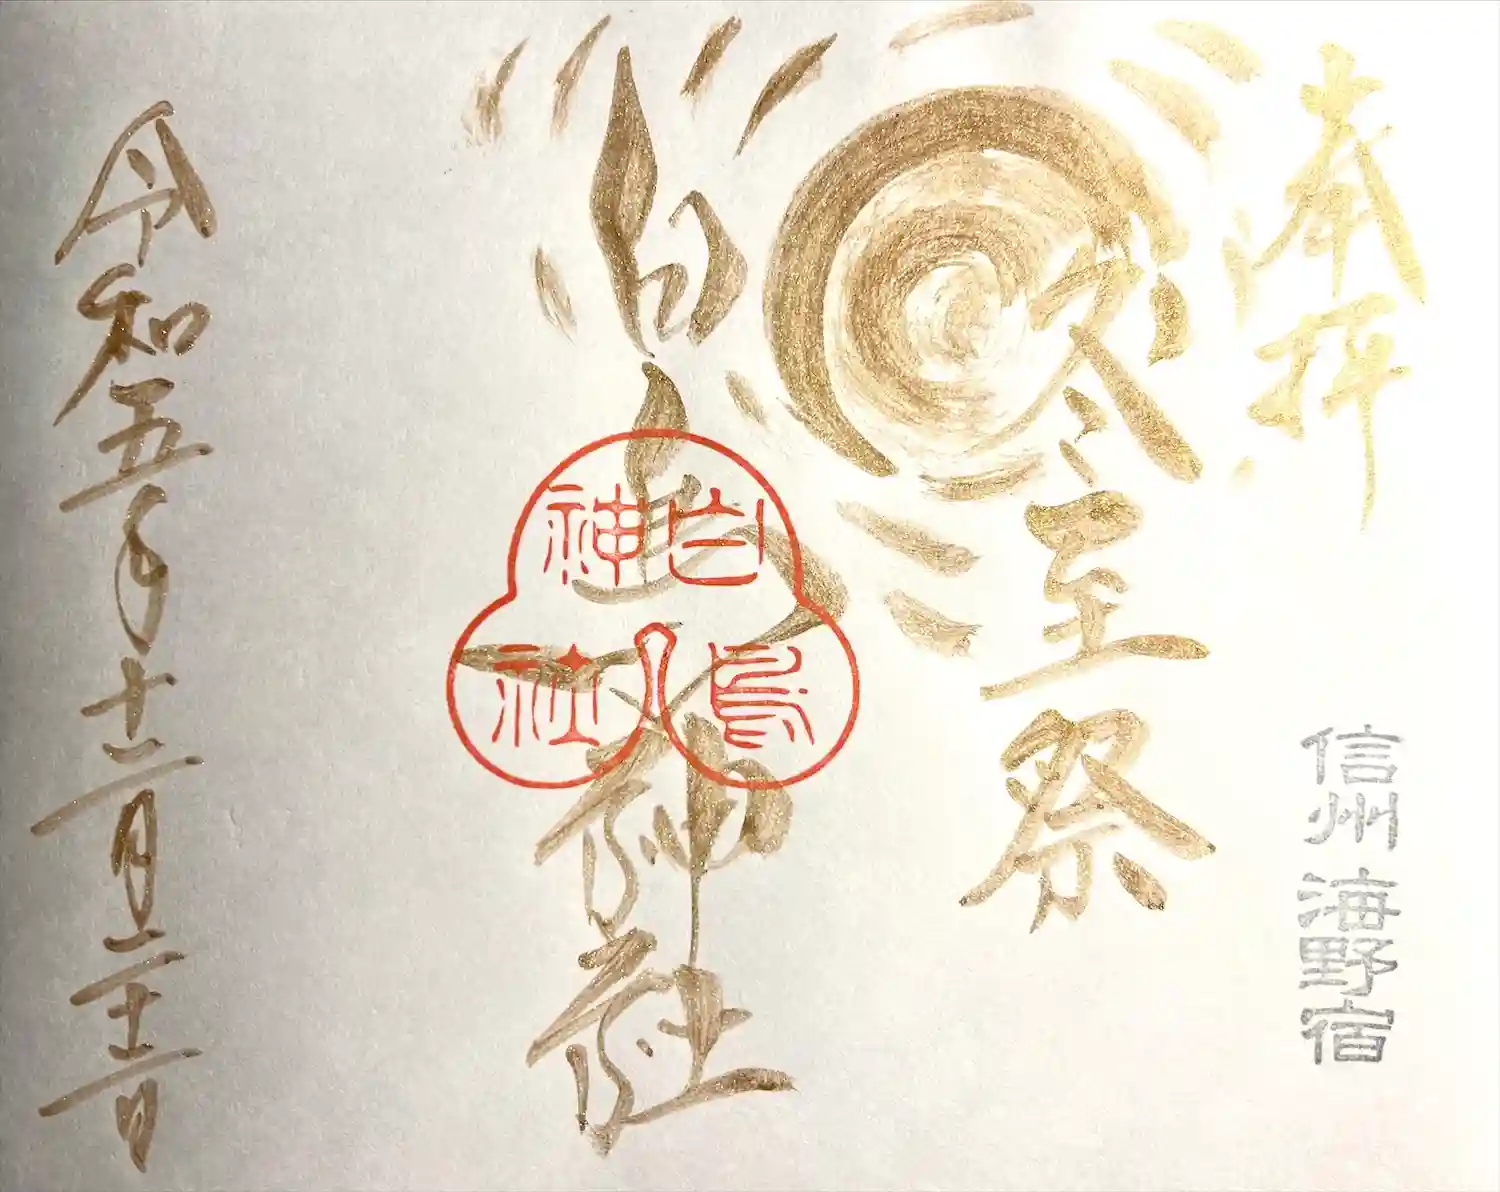 奉拝
信州 海野宿
冬至祭
白鳥神社
白鳥
神社
令和五年十二月二十二日